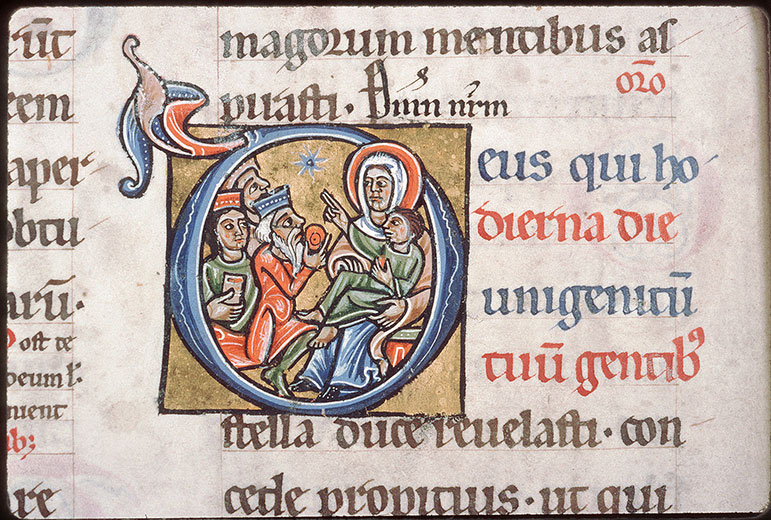 rūt
eem
aper-
obtu
arū.
ost te
oeum l.
nuent
ıb;
re
magorum mentibus as
oro
pirasti. Dum nrm
Deus qui ho-
dierna die
unigenitū
tuū gentib9
stella duce reuelasti. con
cede propitius. ut qui